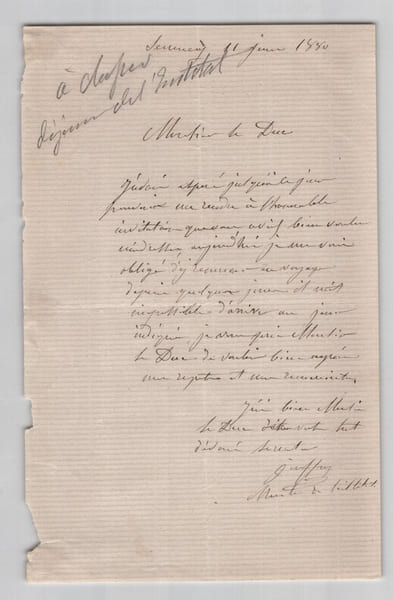 11 juin 1880
à classer
déjeuner de l'Institut
Monsieur le Duc
J'avais espéré jusqu'à ce jour
pouvoir me rendre à l'honorable
invitation que vous avez bien voulu
m'adresser, aujourd'hui je me vois
obligé d'y renoncer en voyage
depuis quelques jours il m'est
impossible d'arriver au jour
indiqué, je vous prie Monsieur
le Duc de vouloir bien agréer
mes regrets et mes remerciements
bien Monsieur
le Duc d'être votre tout
dévoué
Geoffroy
Membre de l'Institut